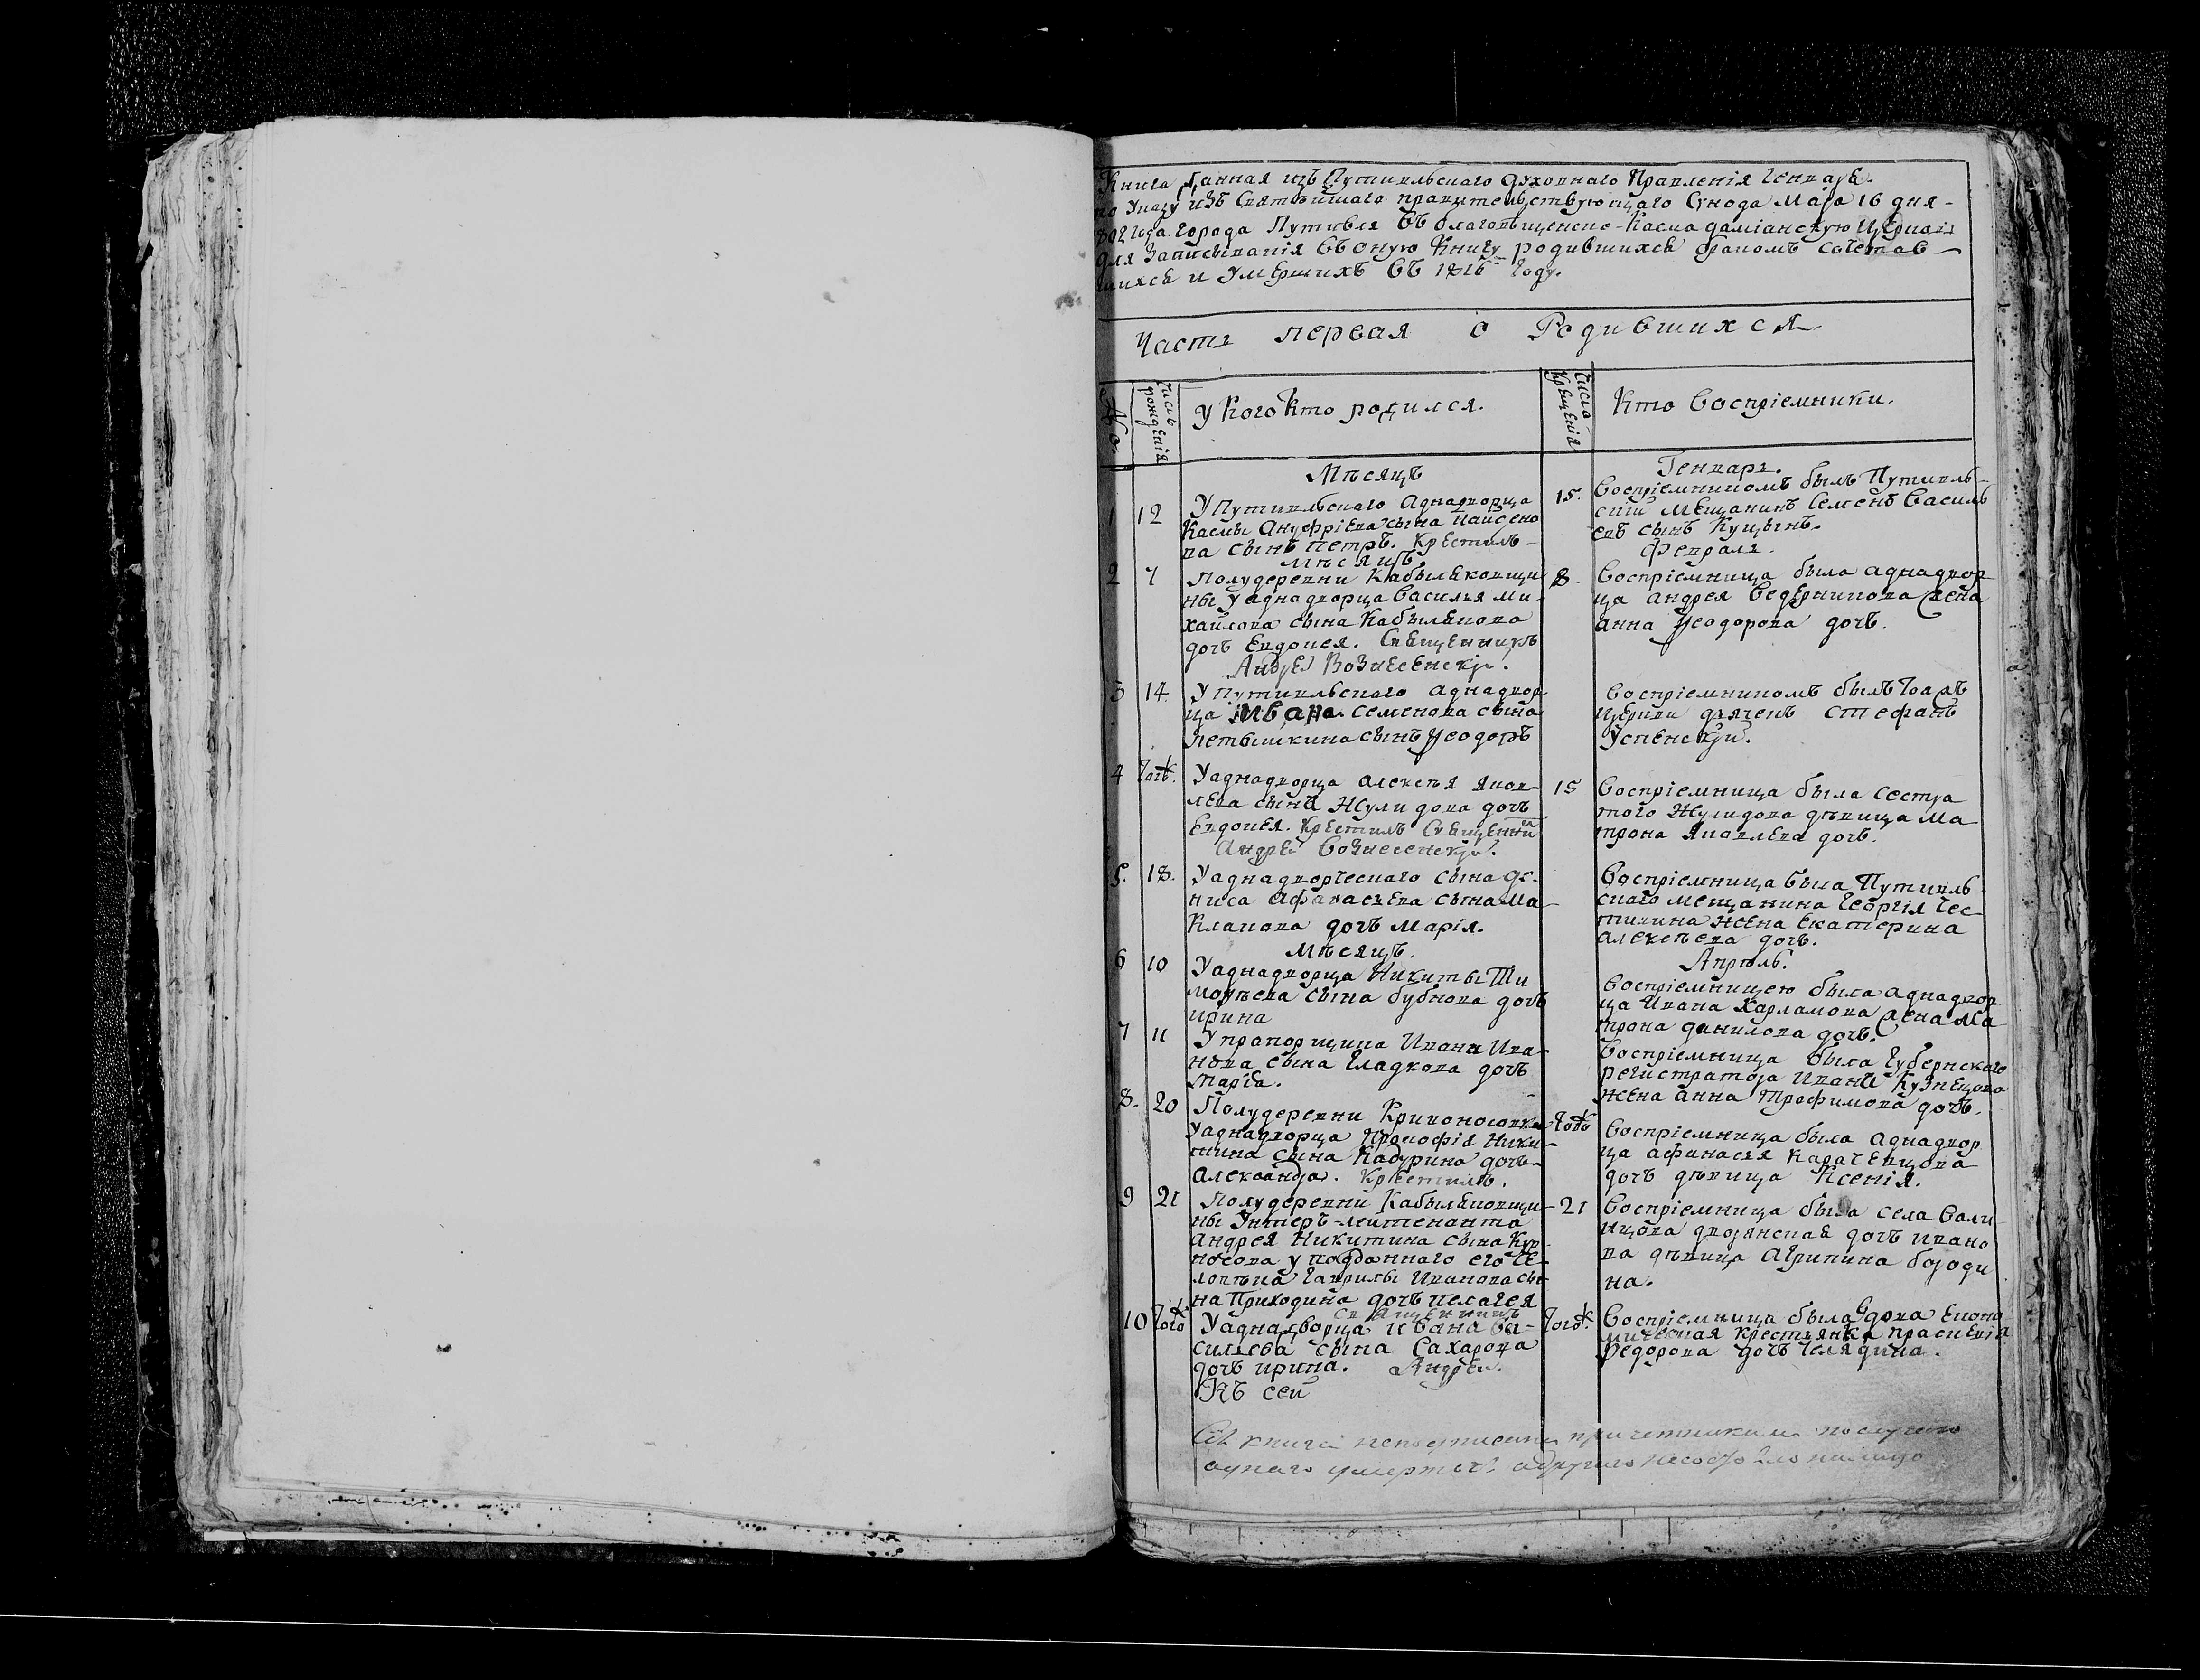 Книга данная изъ Путивльскаго духовнаго Правленія Генваря
по Указу изъ Святѣйшаго правительствующаго Сунода Маја 16 дня -
802 года города Путивля въ благовѣщенско-Касма даміанскую церковь
для Записыванія въ оную Книгу родившихся бракомъ сочетав -
шихся и Умершихъ въ 1816 году.
Часть первая о Родившихся
№ Число рожденія
у Кого Кто родился.
Число Крещенія
Кто Воспріемники.
Мѣсяцъ Генварь.
1 12 У Путивльскаго Аднадворца
Касмы Ануфріева сына
ва сынъ петръ. Крестилъ -
15. Воспріемникомъ былъ Путивль-
ский мещанинъ Семенъ Василь
евъ сынъ Куцынъ.
Мѣсяцъ Февраля.
2 7 Полудеревни Кабыляковщи
ны у аднадворца Василья ми
хайлова сына Кабылякова
дочъ Евдокея. Священникъ
Андрей Вознесенскји.
8 Воспріемница была аднадвор
ца андрея Ведерникова жена
анна Ѳеодорова дочъ.
3 14 У Путивльскаго аднадвор
ца Ивана семенова сына
сынъ Ѳеодоръ
Воспріемникомъ былъ тоя жъ
церкви дьячекъ стефанъ
Успенскји.
4 Тогожъ. У аднадворца алексѣя яков-
лева сына Жулидова дочъ
Евдокея. Крестилъ Священни
Андрей Вознесенскји.
15 Воспріемница была сестра
того Жулидова дѣвица Ма
трона Яковлева дочъ.
5. 18. У аднадворческаго сына де-
ниса Афанасьева сына Ма-
Клакова дочъ Марія.
Воспріемница была Путивль
скаго мещанина Георгія
жена Екатерина
алексѣева дочъ.
Мѣсяцъ. Апрѣль.
6 10 У аднадворца Никиты Ти
моѳѣева сына бубнова дочъ
ирина
Воспріемницею была аднадвор
ца Ивана Харламова жена Ма-
трона данилова дочъ.
7 11 У прапорщика Ивана Ива-
нова сына Гладкова дочъ
Маріа.
Воспріемница была Губернскаго
регистратора Ивана Кузнецова
жена анна Трофимова дочъ.
8. 20 Полудеревни Кривоносовки
У аднадворца Прокофія Ники-
тина сына Кадурина дочъ
Александра. Крестилъ.
Тогожъ Воспріемница была аднадвор
ца афанасея Карачевцова
дочъ дѣвица Ксенія.
9 21 Полудеревни Кабыляковщи-
ны Унтеръ-лейтенанта
андрея Никитина сына Кур
носова у подданнаго его Че-
ловѣка Гаврилы Иванова сы-
на Приходина дочъ пелагея
Священникъ
21 Воспріемница была села Вали
нцова дворянская дочъ ивано
ва дѣвица Агрипина бороди
на.
10 Тогожъ У аднадворца ивана Ва-
сильева сына Сахарова
дочъ ирина. Андрей.
Тогожъ. Воспріемница была вдова Економ
мическая крестьянка праскевіа
Федорова дочъ Челядина.
Къ сей
Сія книга неподписана причетниками послучаю
аднаго умерт адругаго